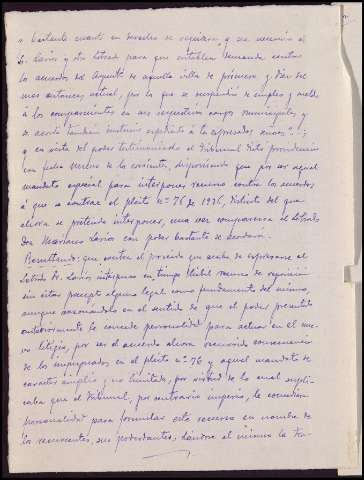 "bastante cuanto en derecho se requiera, y sea necesario al
Sr. Larios y otro letrado para que entablen demanda contra
los acuerdos del Ayunto de aquella villa de primero y diez del
mes entonces actual, por lo que se suspendió de empleo y sueldo
á los comparecientes en sus respectivos cargos municipales, y
se acordó también instruir expediente á los expresados
y en vista del poder testimoniado el Tribunal dictó providencia
con fecha del corriente, disponiendo que por ser aquel
mandato especial para interponer recurso contra los acuerdos
á que se contrae el pleito nº 76 de 1926, distinto del que
ahora se pretende interponer, una vez comparezca el Letrado
Don Mariano Larios con poder bastante se acordaría.
Resultando: que contra el proveido que acaba de expresarse el
Letrado Sr. Larios interpuso en tiempo hábil recurso de reposición
sin citar precepto alguno legal como fundamento del mismo,
aunque razonándolo en el sentido de que el poder presentado
anteriormente le concede personalidad para actuar en el nue-
vo litigio, por ser el acuerdo ahora recurrido consecuencia
de los impugnados en el pleito nº 76 y aquel mandato de
carácter amplio y no limitado, por virtud de lo cual supli-
caba que el Tribunal, por contrario imperio, le concediera
personalidad para formular este recurso en nombre de
los recurrentes, sus poderdantes; dándose al mismo la tra-